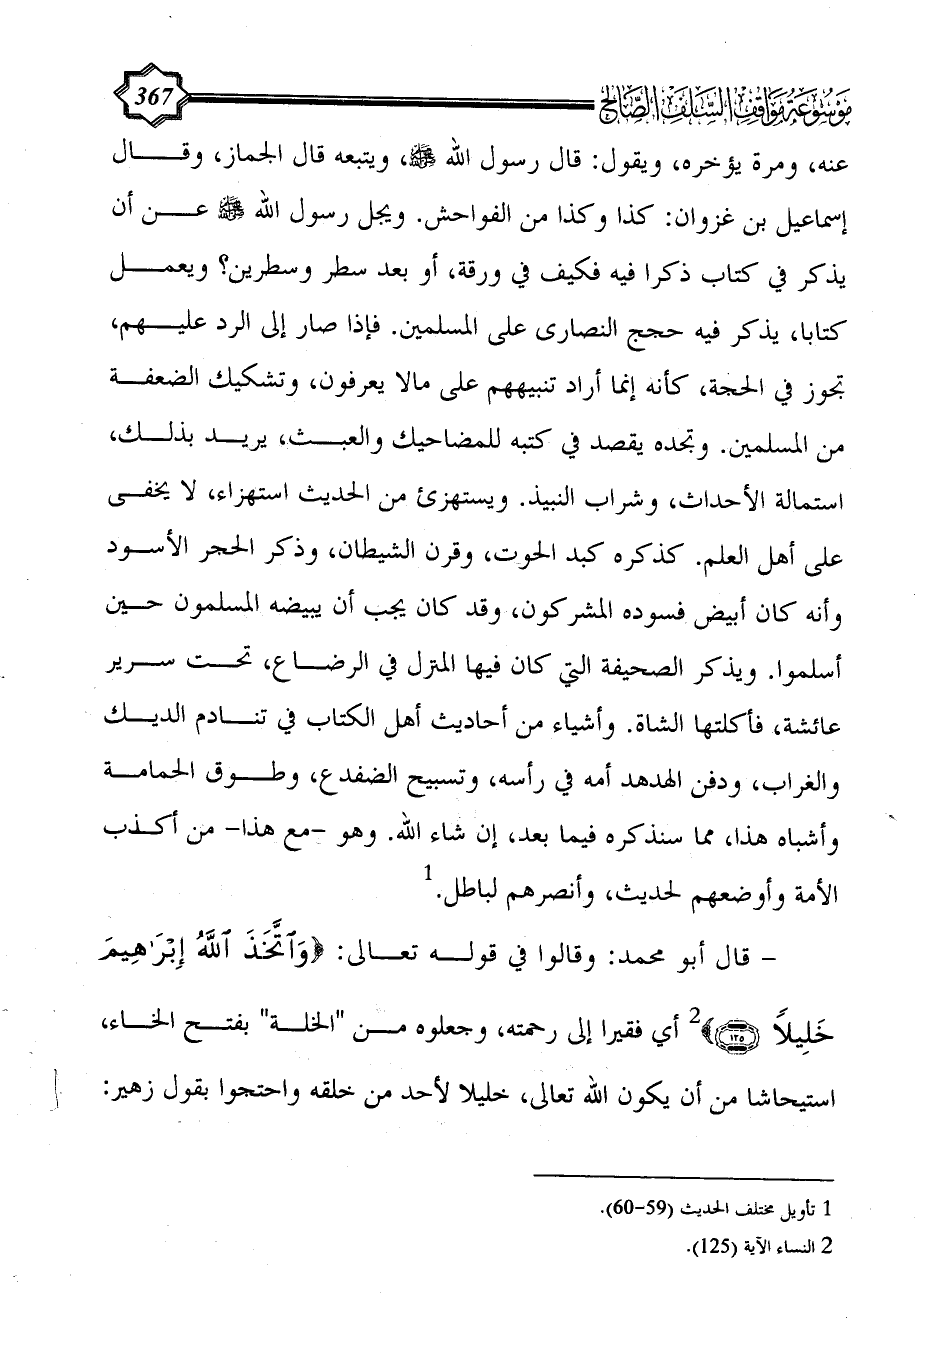 موسوعة مواقف السلف الصالح
367
عنه، ومرة يؤخره، ويقول: قال رسول الله ﷺ، ويتبعه قال الجماز، وقـــال
إسماعيل بن غزوان: كذا وكذا من الفواحش. ويجل رسول الله ﷺ عـــن أن
يذكر في كتاب ذكرا فيه فكيف في ورقة، أو بعد سطر وسطرين؟ ويعمـــل
كتابا، يذكر فيه حجج النصارى على المسلمين. فإذا صار إلى الرد عليـــهم،
تجوز في الحجة، كأنه إنما أراد تنبيههم على مالا يعرفون، وتشكيك الضعفـــة
من المسلمين. وتجده يقصد في كتبه للمضاحيك والعبـــث، يريـــد بذلـــك،
استمالة الأحداث، وشراب النبيذ. ويستهزئ من الحديث استهزاء، لا يخفـــى
على أهل العلم. كذكره كبد الحوت، وقرن الشيطان، وذكر الحجر الأســـود
وأنه كان أبيض فسوده المشركون، وقد كان يجب أن يبيضه المسلمون حـــين
أسلموا. ويذكر الصحيفة التي كان فيها المنزل في الرضـــاع، تحـــت ســـرير
عائشة، فأكلتها الشاة. وأشياء من أحاديث أهل الكتاب في تنـــادم الديـــك
والغراب، ودفن الهدهد أمه في رأسه، وتسبيح الضفدع، وطـــوق الحمامـــة
وأشباه هذا، مما سنذكره فيما بعد، إن شاء الله. وهو -مع هذا- من أكـــذب
الأمة وأوضعهم لحديث، وأنصرهم لباطل.1
- قال أبو محمد: وقالوا في قولـــه تعـــالى: ﴿وَٱتَّخَذَ ٱللَّهُ إِبْرَٰهِيمَ
خَلِيلًا ١٢٥﴾2 أي فقيرا إلى رحمته، وجعلوه مـــن "الخلـــة" بفتـــح الخـــاء،
استيحاشا من أن يكون الله تعالى، خليلا لأحد من خلقه واحتجوا بقول زهير:
1 تأويل مختلف الحديث (59-60).
2 النساء الآية (125).